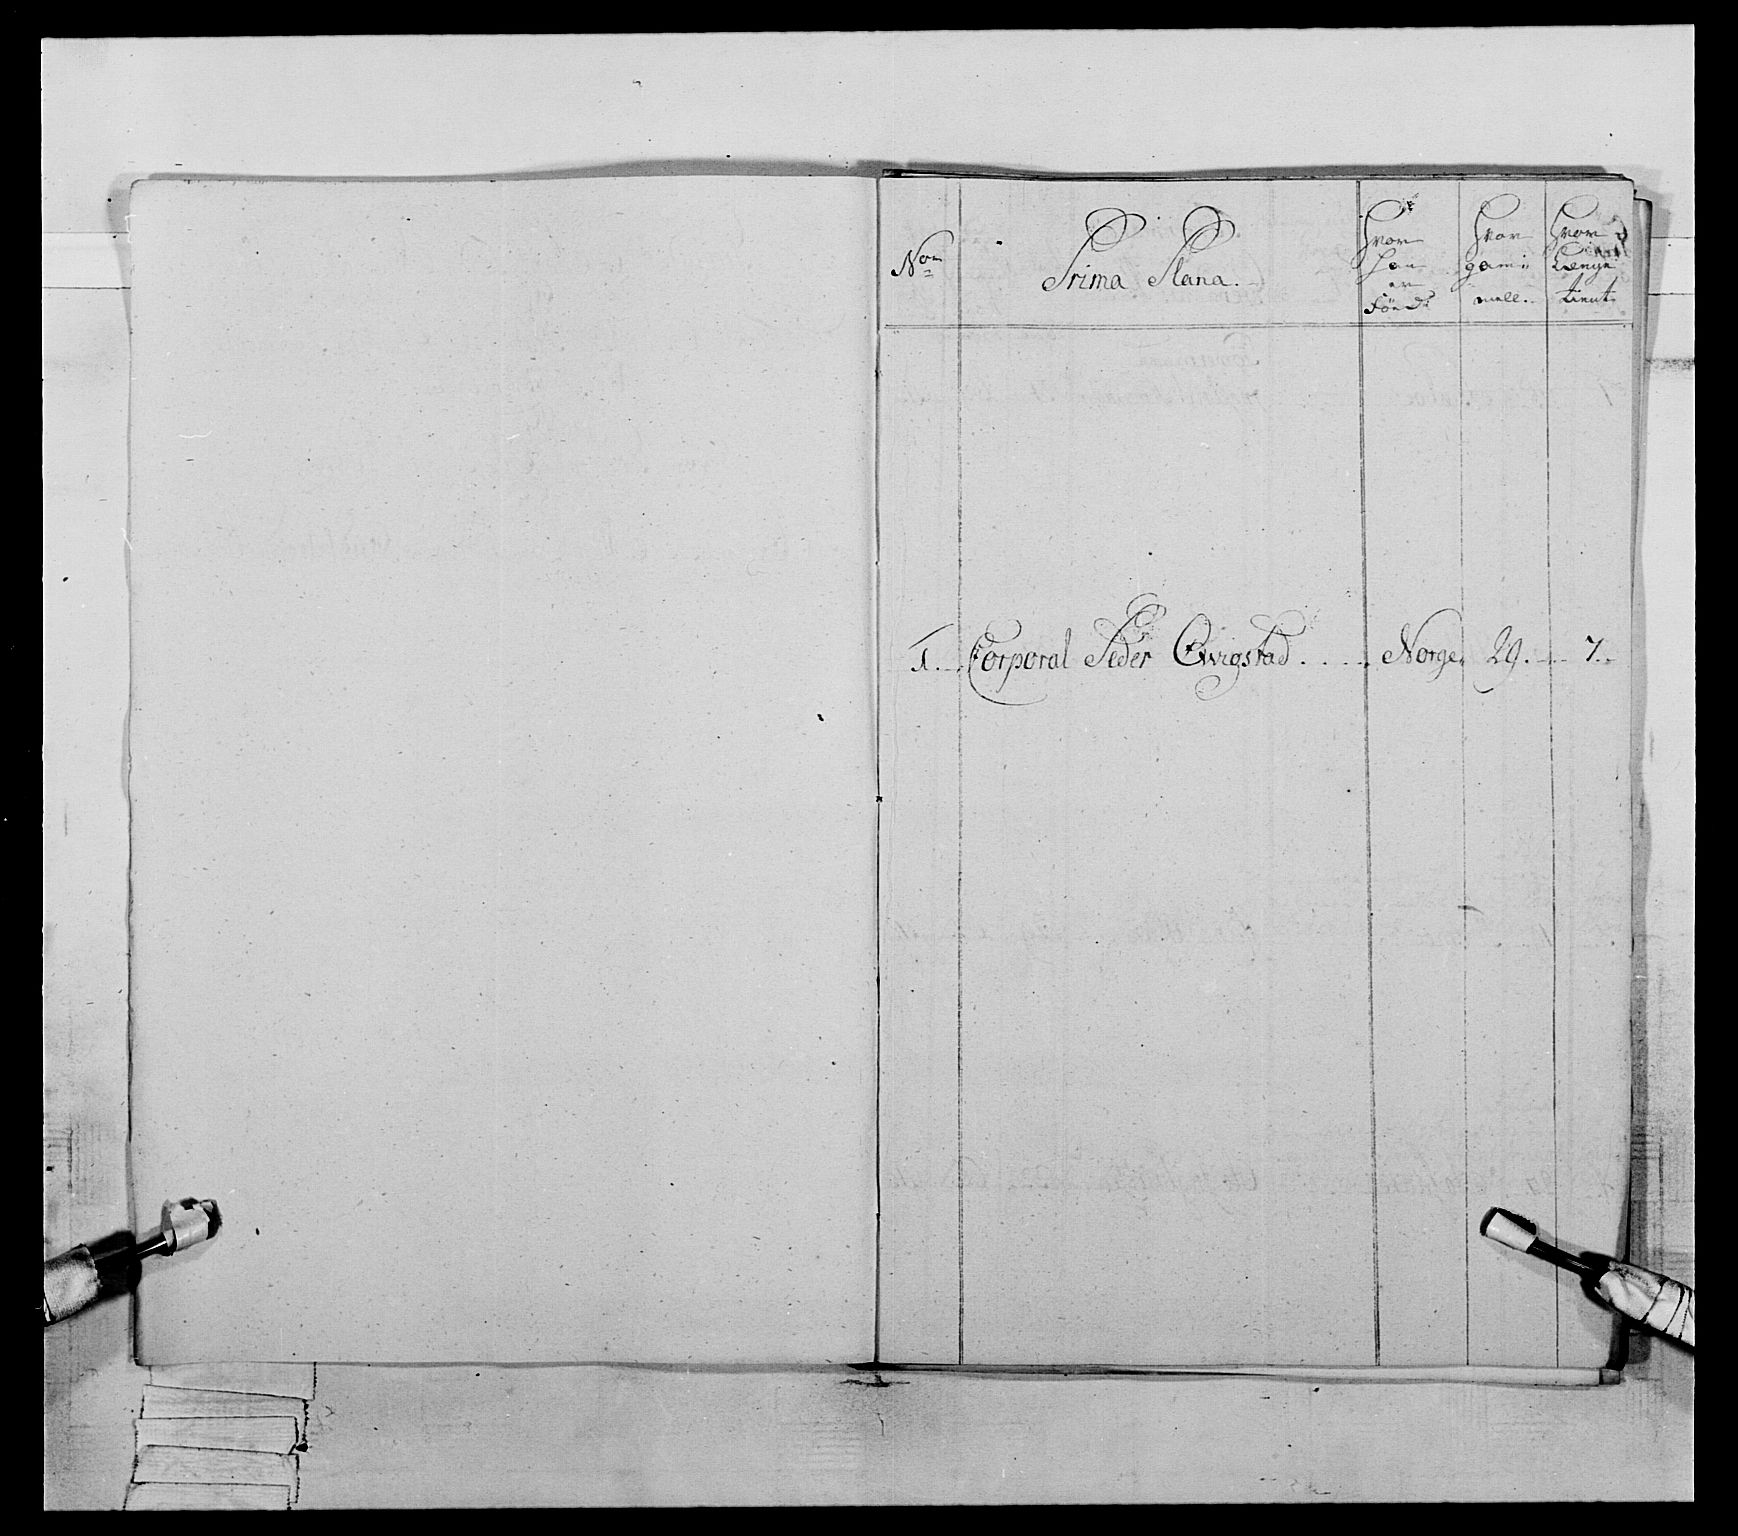 No
Prima Plana.
Hvor
han
er
föed
Hvor
gam̄
mell.
Hvor
Længe
tient
1. Corporal Peder Qwigstad. Norge 29. 7.